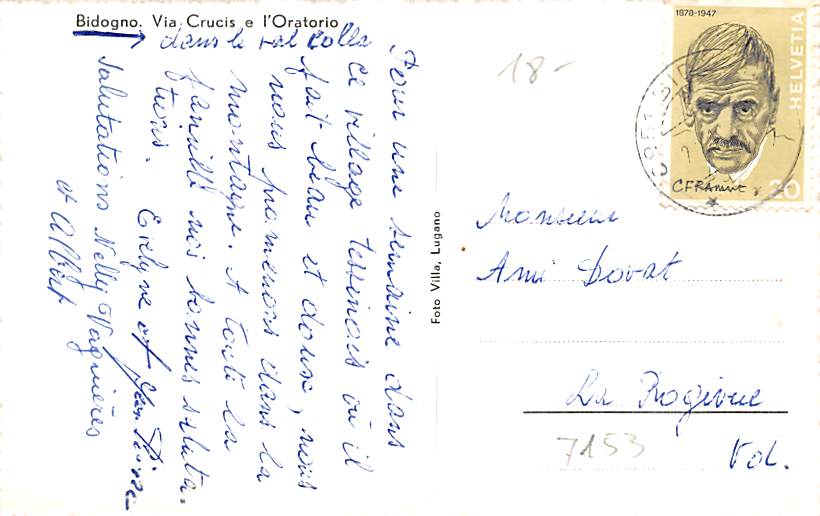 Bidogno. Via Crucis e l'Oratorio
dans le val Colla
Pour une semaine dans
ce village tessinois où il
fait beau et doux, nous
nous promenons dans la
montagne. A toute la
famille nos bonnes saluta-
tions. Evelyne et Jean Pierre
Salutations Nelly Vaguières
et Albert
Foto Villa, Lugano
18-
1878-1947
HELVETIA
CFRAMUZ
20
Monsieur
Ami Dovat
La Rogivue
7153
Vd.